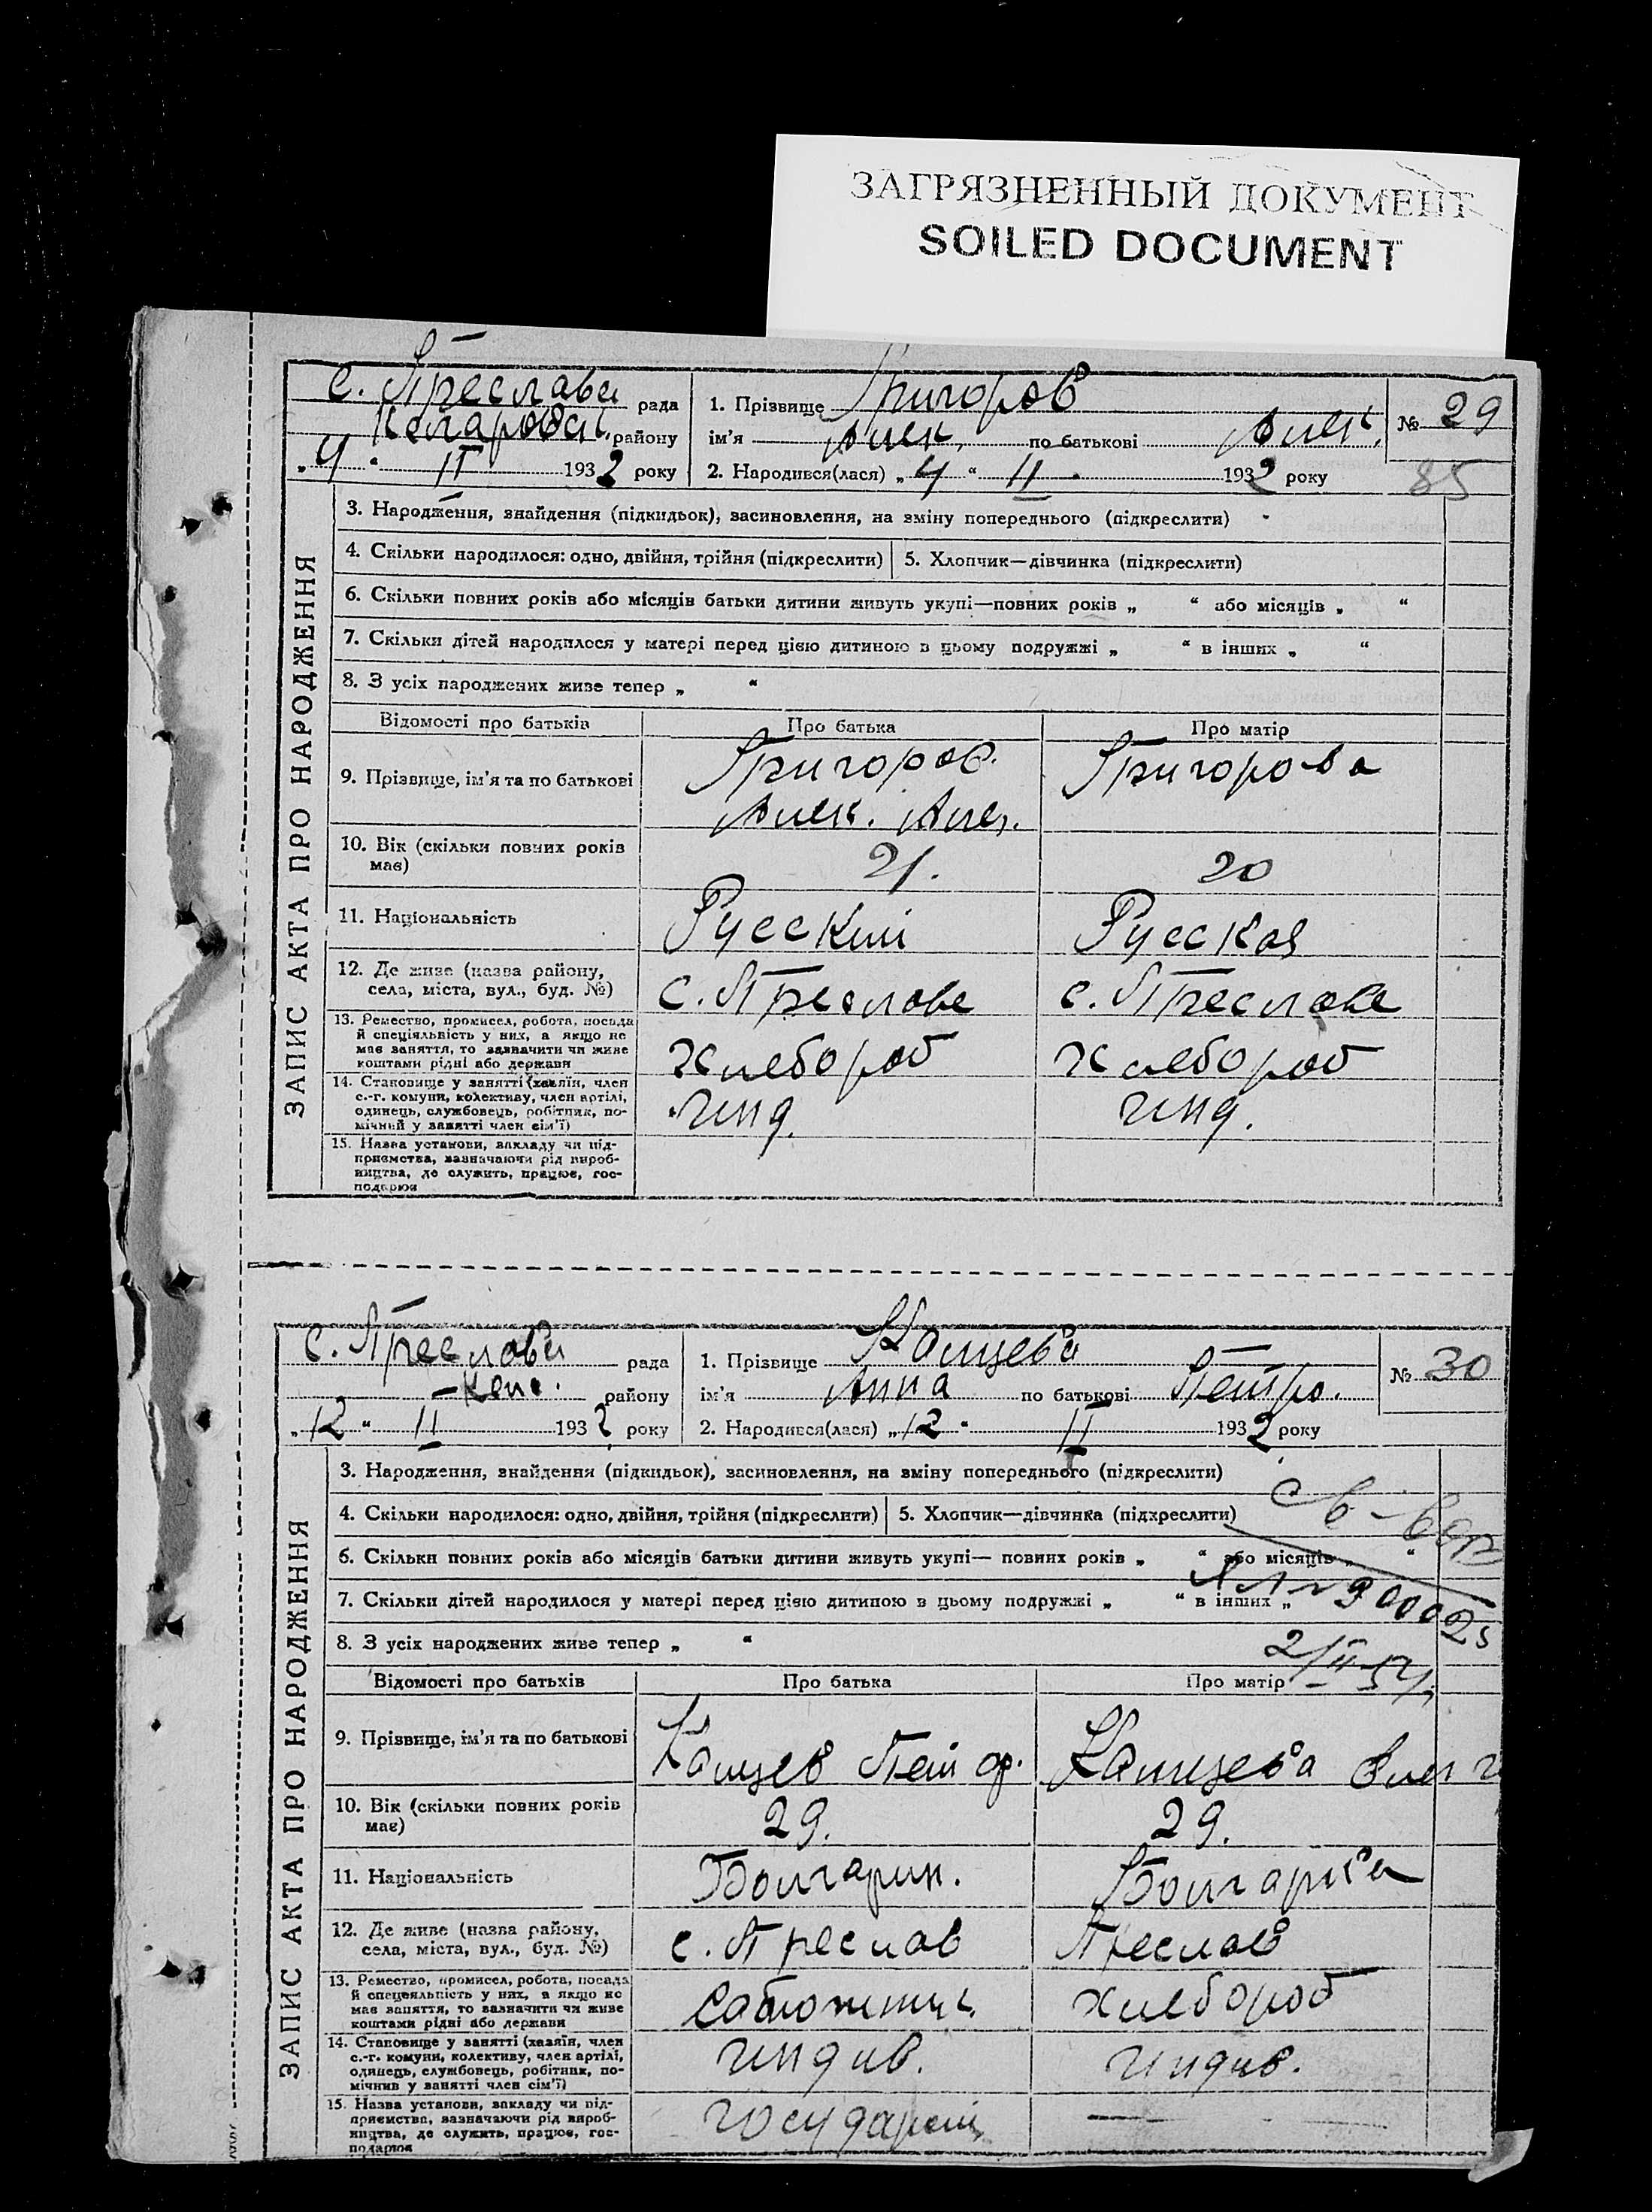 ЗАГРЯЗНЕННЫЙ ДОКУМЕНТ
SOILED DOCUMENT
с. Преслава рада
району
„4“ II 1932 року
1. Прізвище Григоров
ім’я Алек. по батькові Алек.
2. Народився(лася) „4“ II 1932 року
№ 29
85
ЗАПИС АКТА ПРО НАРОДЖЕННЯ
3. Народження, знайдення (підкидьок), засиновлення, на зміну попереднього (підкреслити)
4. Скільки народилося: одно, двійня, трійня (підкреслити) 5. Хлопчик—дівчинка (підкреслити)
6. Скільки повних років або місяців батьки дитини живуть укупі—повних років „ “ або місяців „ “
7. Скільки дітей народилося у матері перед цією дитиною в цьому подружжі „ “ в інших „ “
8. З усіх народжених живе тепер „ “
Відомості про батьків Про батька Про матір
9. Прізвище, ім’я та по батькові Григоров. Григорова
Алек. Алек.
10. Вік (скільки повних років має) 21. 20
11. Національність Русский Русская
12. Де живе (назва району, села, міста, вул., буд. №) с. Преславе с. Преславе
13. Ремество, промисел, робота, посада
й спеціяльність у них, а якщо не
має заняття, то зазначити чи живе
коштами рідні або держави
Хлебороб Хлебороб
14. Становище у занятті (хазяїн, член
с.-г. комуни, колективу, член артілі,
одинець, службовець, робітник, по-
мічний у занятті член сім’ї)
Инд. Инд.
15. Назва установи, закладу чи під-
приємства, зазначаючи рід вироб-
ництва, де служить, працює, гос-
подарює
с. Преслава рада
району
„12“ II 1932 року
1. Прізвище Канцева
ім’я Анна по батькові Петро.
2. Народився(лася) „12“ II 1932 року
№ 30
ЗАПИС АКТА ПРО НАРОДЖЕННЯ
3. Народження, знайдення (підкидьок), засиновлення, на зміну попереднього (підкреслити)
4. Скільки народилося: одно, двійня, трійня (підкреслити) 5. Хлопчик—дівчинка (підкреслити)
6. Скільки повних років або місяців батьки дитини живуть укупі— повних років „ “ або місяців „ “
7. Скільки дітей народилося у матері перед цією дитиною в цьому подружжі „ “ в інших „
8. З усіх народжених живе тепер „ “
Відомості про батьків Про батька Про матір
9. Прізвище, ім’я та по батькові Канцев Канцева
10. Вік (скільки повних років має) 29. 29.
11. Національність Болгарин. Болгарка
12. Де живе (назва району, села, міста, вул., буд. №) с. Преслав Преслав
13. Ремество, промисел, робота, посада
й спеціяльність у них, а якщо не
має заняття, то зазначити чи живе
коштами рідні або держави
Хлебороб
14. Становище у занятті (хазяїн, член
с.-г. комуни, колективу, член артілі,
одинець, службовець, робітник, по-
мічний у занятті член сім’ї)
Индив. Индив.
15. Назва установи, закладу чи під-
приємства, зазначаючи рід вироб-
ництва, де служить, працює, гос-
подарює